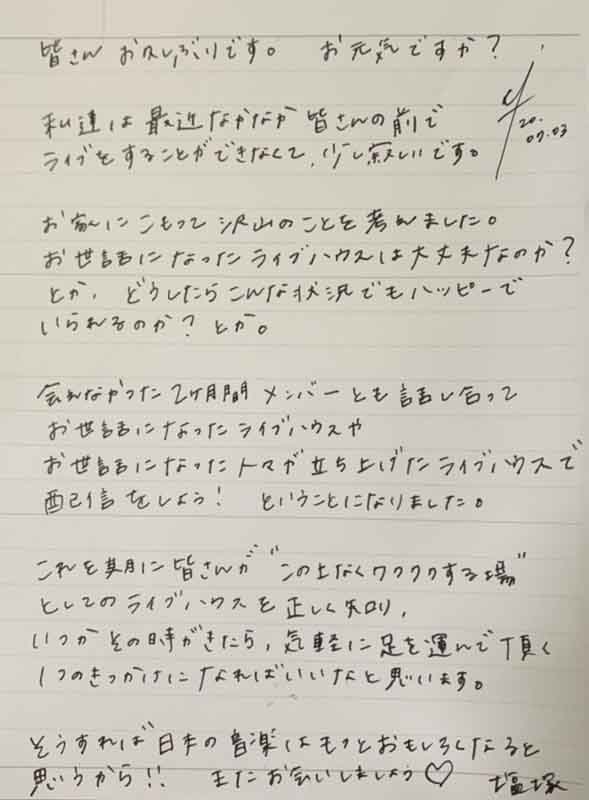 皆さん お久しぶりです。 お元気ですか?
20.
07.03
私達は最近なかなか皆さんの前で
ライブをすることができなくて、少し寂しいです。
お家にこもって沢山のことを考えました。
お世話になったライブハウスは大丈夫なのか?
とか、どうしたらこんな状況でもハッピーで
いられるのか?とか。
会えなかった2ヶ月間 メンバーとも話し合って
お世話になったライブハウスや
お世話になった人々が立ち上げたライブハウスで
配信をしよう! ということになりました。
これを期に皆さんが"この上なくワクワクする場"
としてのライブハウスを正しく知り、
いつかその時がきたら、気軽に足を運んで頂く
1つのきっかけになればいいなと思います。
そうすれば日本の音楽はもっとおもしろくなると
思うから!! またお会いしましょう♡ 塩塚